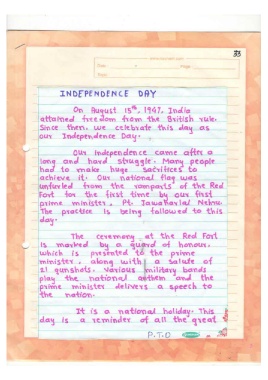 33
Date
Page
INDEPENDENCE DAY
On August 15th, 1947, India
attained freedom from the British rule.
Since then, we celebrate this day as
our Independence Day.
Our independence came after a
long and hard struggle. Many people
had to make huge sacrifices to
achieve it. Our national flag was
unfurled from the ramparts of the Red
Fort for the first time by our first
prime minister, Pt. Jawaharlal Nehru.
The practice is being followed to this
day.
The ceremony at the Red Fort
is marked by a guard of honour,
which is presented to the prime
minister, along with a salute of
21 gunshots. Various military bands
play the national anthem and the
prime minister delivers a speech to
the nation.
It is a national holiday. This
day is a reminder of all the great
P.T.O